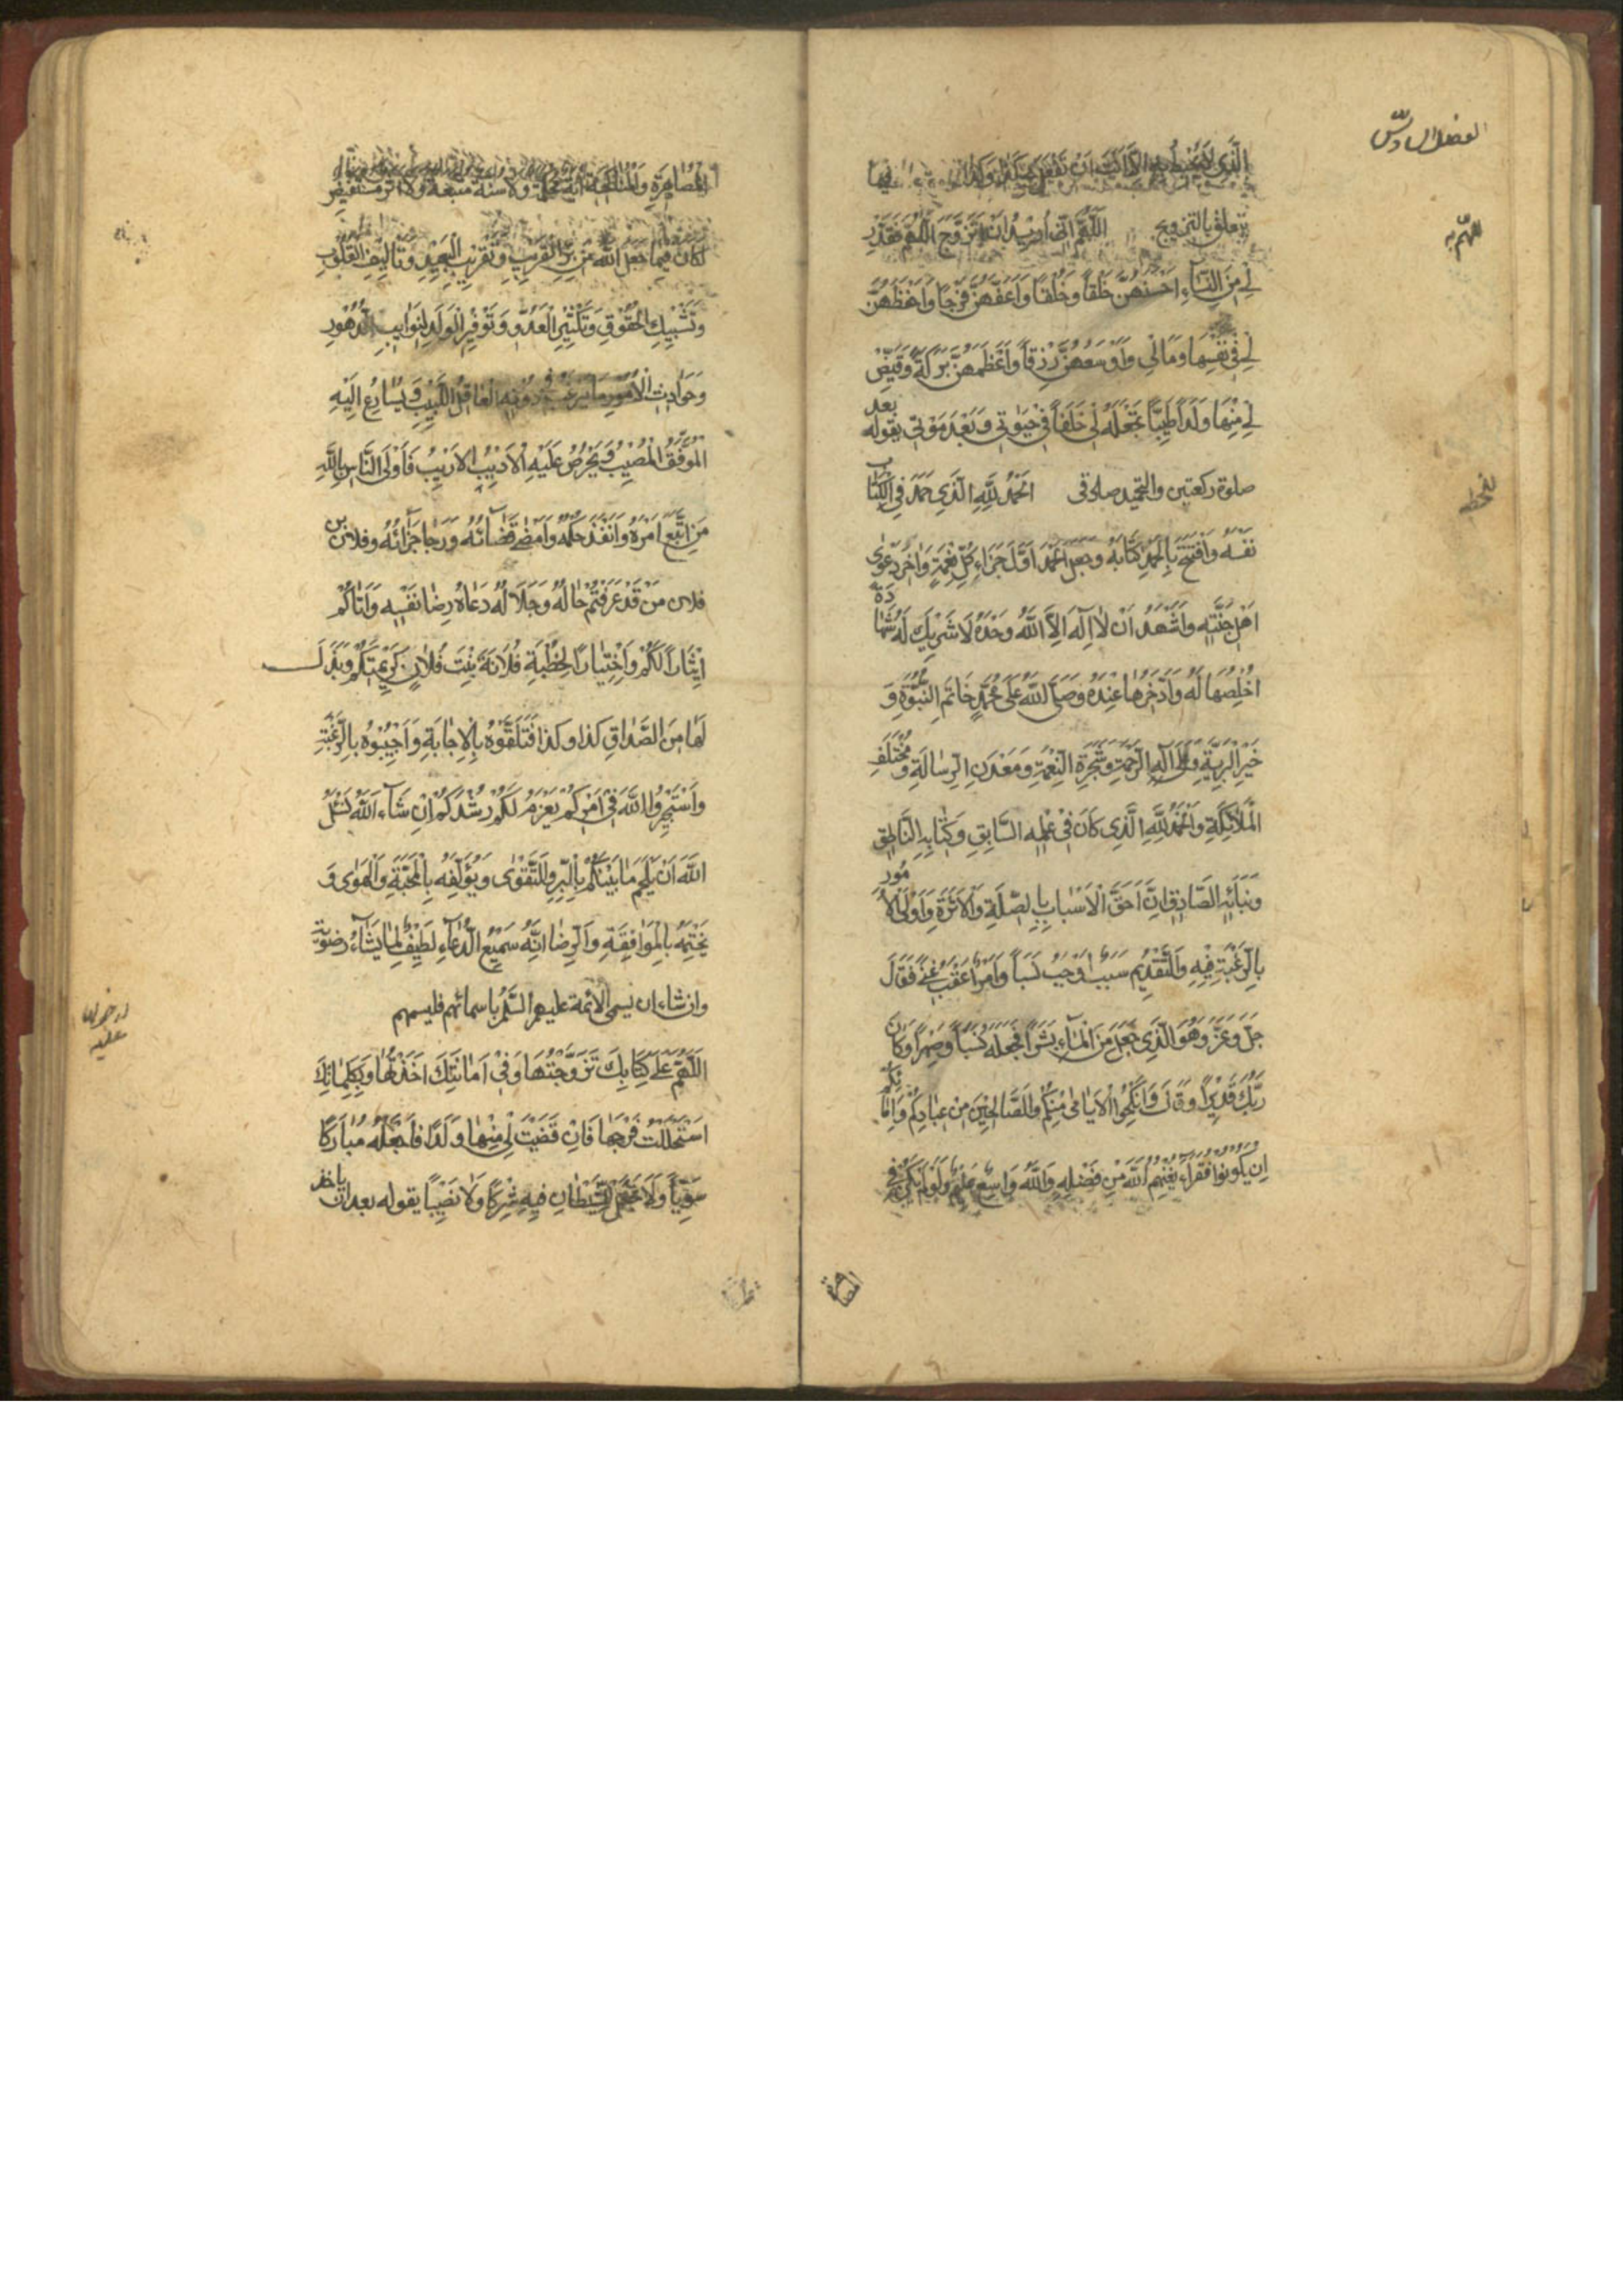 الفصل السادس
الَّذِي لا يَخِيبُ
يتعلق بالتزويج اَللّهُمَّ اِنّي اُريدُ اَنْ اَتَزَوَّجَ اللّهُمَّ فَقَدِّرْ
لِي مِنَ النِّسَاءِ اَحْسَنَهُنَّ خَلْقاً وَخُلْقاً وَاَعَفَّهُنَّ فَرْجاً وَاَحْفَظَهُنَّ
لِي فِي نَفْسِهَا وَمَالِي وَاَوْسَعَهُنَّ رِزْقاً وَاَعْظَمَهُنَّ بَرَكَةً وَقَيِّضْ
لِي مِنْهَا وَلَداً طَيِّباً تَجْعَلُهُ لِي خَلَفاً فِي حَيٰوتِي وَبَعْدَ مَوْتِي يقوله بعد
صلوة ركعتين والتحميد اَلْحَمْدُ لِلّهِ الَّذِي حَمِدَ فِي الْكِتَابِ
نَفْسَهُ وَافْتَتَحَ بِالْحَمْدِ كِتَابَهُ وَجَعَلَ الْحَمْدَ اَوَّلَ جَزَاءِ كُلِّ نِعْمَةٍ وَاٰخِرَ دَعْوٰى
اَهْلِ جَنَّتِهِ وَاَشْهَدُ اَنْ لٰا اِلٰهَ اِلَّا اللّهُ وَحْدَهُ لَا شَرِيكَ لَهُ شَهَادَةً
اُخْلِصُهَا لَهُ وَاَدَّخِرُهَا عِنْدَهُ وَصَلَّى اللّهُ عَلَى مُحَمَّدٍ خَاتَمِ النُّبُوَّةِ وَ
خَيْرِ الْبَرِيَّةِ وَعَلَى آلِهِ الرَّحْمَةِ وَشَجَرَةِ النِّعْمَةِ وَمَعْدَنِ الرِّسَالَةِ وَمُخْتَلَفِ
الْمَلَائِكَةِ وَالْحَمْدُ لِلّهِ الَّذِي كَانَ فِي عِلْمِهِ السَّابِقِ وَكِتَابِهِ النَّاطِقِ
وَنَبَائِهِ الصَّادِقِ اِنَّ اَحَقَّ الْاَسْبَابِ بِالصِّلَةِ وَالْاَثَرَةِ وَاَوْلَى الْاُمُورِ
بِالرَّغْبَةِ فِيهِ وَالتَّقْدِيمِ سَبَبٌ اَوْجَبَ نَسَباً وَاَمْرٌ اَعْقَبَ غِنًى فَقَالَ
جَلَّ وَعَزَّ وَهُوَ الَّذِي خَلَقَ مِنَ الْمَاءِ بَشَراً فَجَعَلَهُ نَسَباً وَصِهْراً وَكَانَ
رَبُّكَ قَدِيراً وَقَالَ وَاَنْكِحُوا الْاَيَامَى مِنْكُمْ وَالصَّالِحِينَ مِنْ عِبَادِكُمْ وَاِمَائِكُمْ
اِنْ يَكُونُوا فُقَرَاءَ يُغْنِهِمُ اللّهُ مِنْ فَضْلِهِ وَاللّهُ وَاسِعٌ عَلِيمٌ وَلَوْ لَمْ يَكُنْ فِي
الْمُنَاكَحَةِ وَالْمُصَاهَرَةِ آيَةٌ مُحْكَمَةٌ وَلَا سُنَّةٌ مُتَّبَعَةٌ وَلَا اَثَرٌ مُسْتَفِيضٌ
لَكَانَ فِيمَا جَعَلَ اللّهُ مِنْ بِرِّ الْقَرِيبِ وَتَقْرِيبِ الْبَعِيدِ وَتَأْلِيفِ الْقُلُوبِ
وَتَشْبِيكِ الْحُقُوقِ وَتَكْثِيرِ الْعَدَدِ وَتَوْفِيرِ الْوَلَدِ لِنَوَائِبِ الدُّهُورِ
وَحَوَادِثِ الْاُمُورِ مَا يَرْغَبُ فِي دُونِهِ الْعَاقِلُ اللَّبِيبُ وَيُسَارِعُ اِلَيْهِ
الْمُوَفَّقُ الْمُصِيبُ وَيَحْرِصُ عَلَيْهِ الْاَدِيبُ الْاَرِيبُ فَاَوْلَى النَّاسِ بِاللّهِ
مَنِ اتَّبَعَ اَمْرَهُ وَاَنْفَذَ حُكْمَهُ وَاَمْضَى قَضَائَهُ وَرَجَا جَزَائَهُ وفلان بن
فلان مَنْ قَدْ عَرَفْتُمْ حَالَهُ وَجَلَالَهُ دَعَاهُ رِضَا نَفْسِهِ وَاَتَاكُمْ
اِيثَاراً لَكُمْ وَاخْتِيَاراً لِخِطْبَةِ فُلَانَةَ بِنْتِ فُلَانٍ كَرِيمَتِكُمْ وَبَذَلَ
لَهَا مِنَ الصَّدَاقِ كَذَا وَكَذَا فَتَلَقَّوْهُ بِالْاِجَابَةِ وَاَجِيبُوهُ بِالرَّغْبَةِ
وَاسْتَخِيرُوا اللّهَ فِي اَمْرِكُمْ يَعْزِمْ لَكُمْ رُشْدَكُمْ اِنْ شَاءَ اللّهُ نَسْئَلُ
اللّهَ اَنْ يُلْحِمَ مَا بَيْنَكُمْ بِالْبِرِّ وَالتَّقْوٰى وَيُؤَلِّفَهُ بِالْمَحَبَّةِ وَالْهَوٰى وَ
يَخْتِمَهُ بِالْمُوَافَقَةِ وَالرِّضَا اِنَّهُ سَمِيعُ الدُّعَاءِ لَطِيفٌ لِمَا يَشَاءُ
وان شاء ان يسمى الائمة عليهم السلم باسمائهم فليسمهم
اَللّهُمَّ عَلَى كِتَابِكَ تَزَوَّجْتُهَا وَفِي اَمَانَتِكَ اَخَذْتُهَا وَبِكَلِمَاتِكَ
اسْتَحْلَلْتُ فَرْجَهَا فَاِنْ قَضَيْتَ لِي مِنْهَا وَلَداً فَاجْعَلْهُ مُبَارَكاً
سَوِيّاً وَلَا تَجْعَلْ لِلشَّيْطَانِ فِيهِ شِرْكاً وَلَا نَصِيباً يقوله بعد ان ياخذ